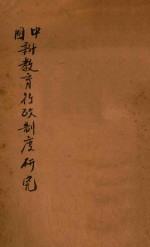 中國新教育行政制度研究